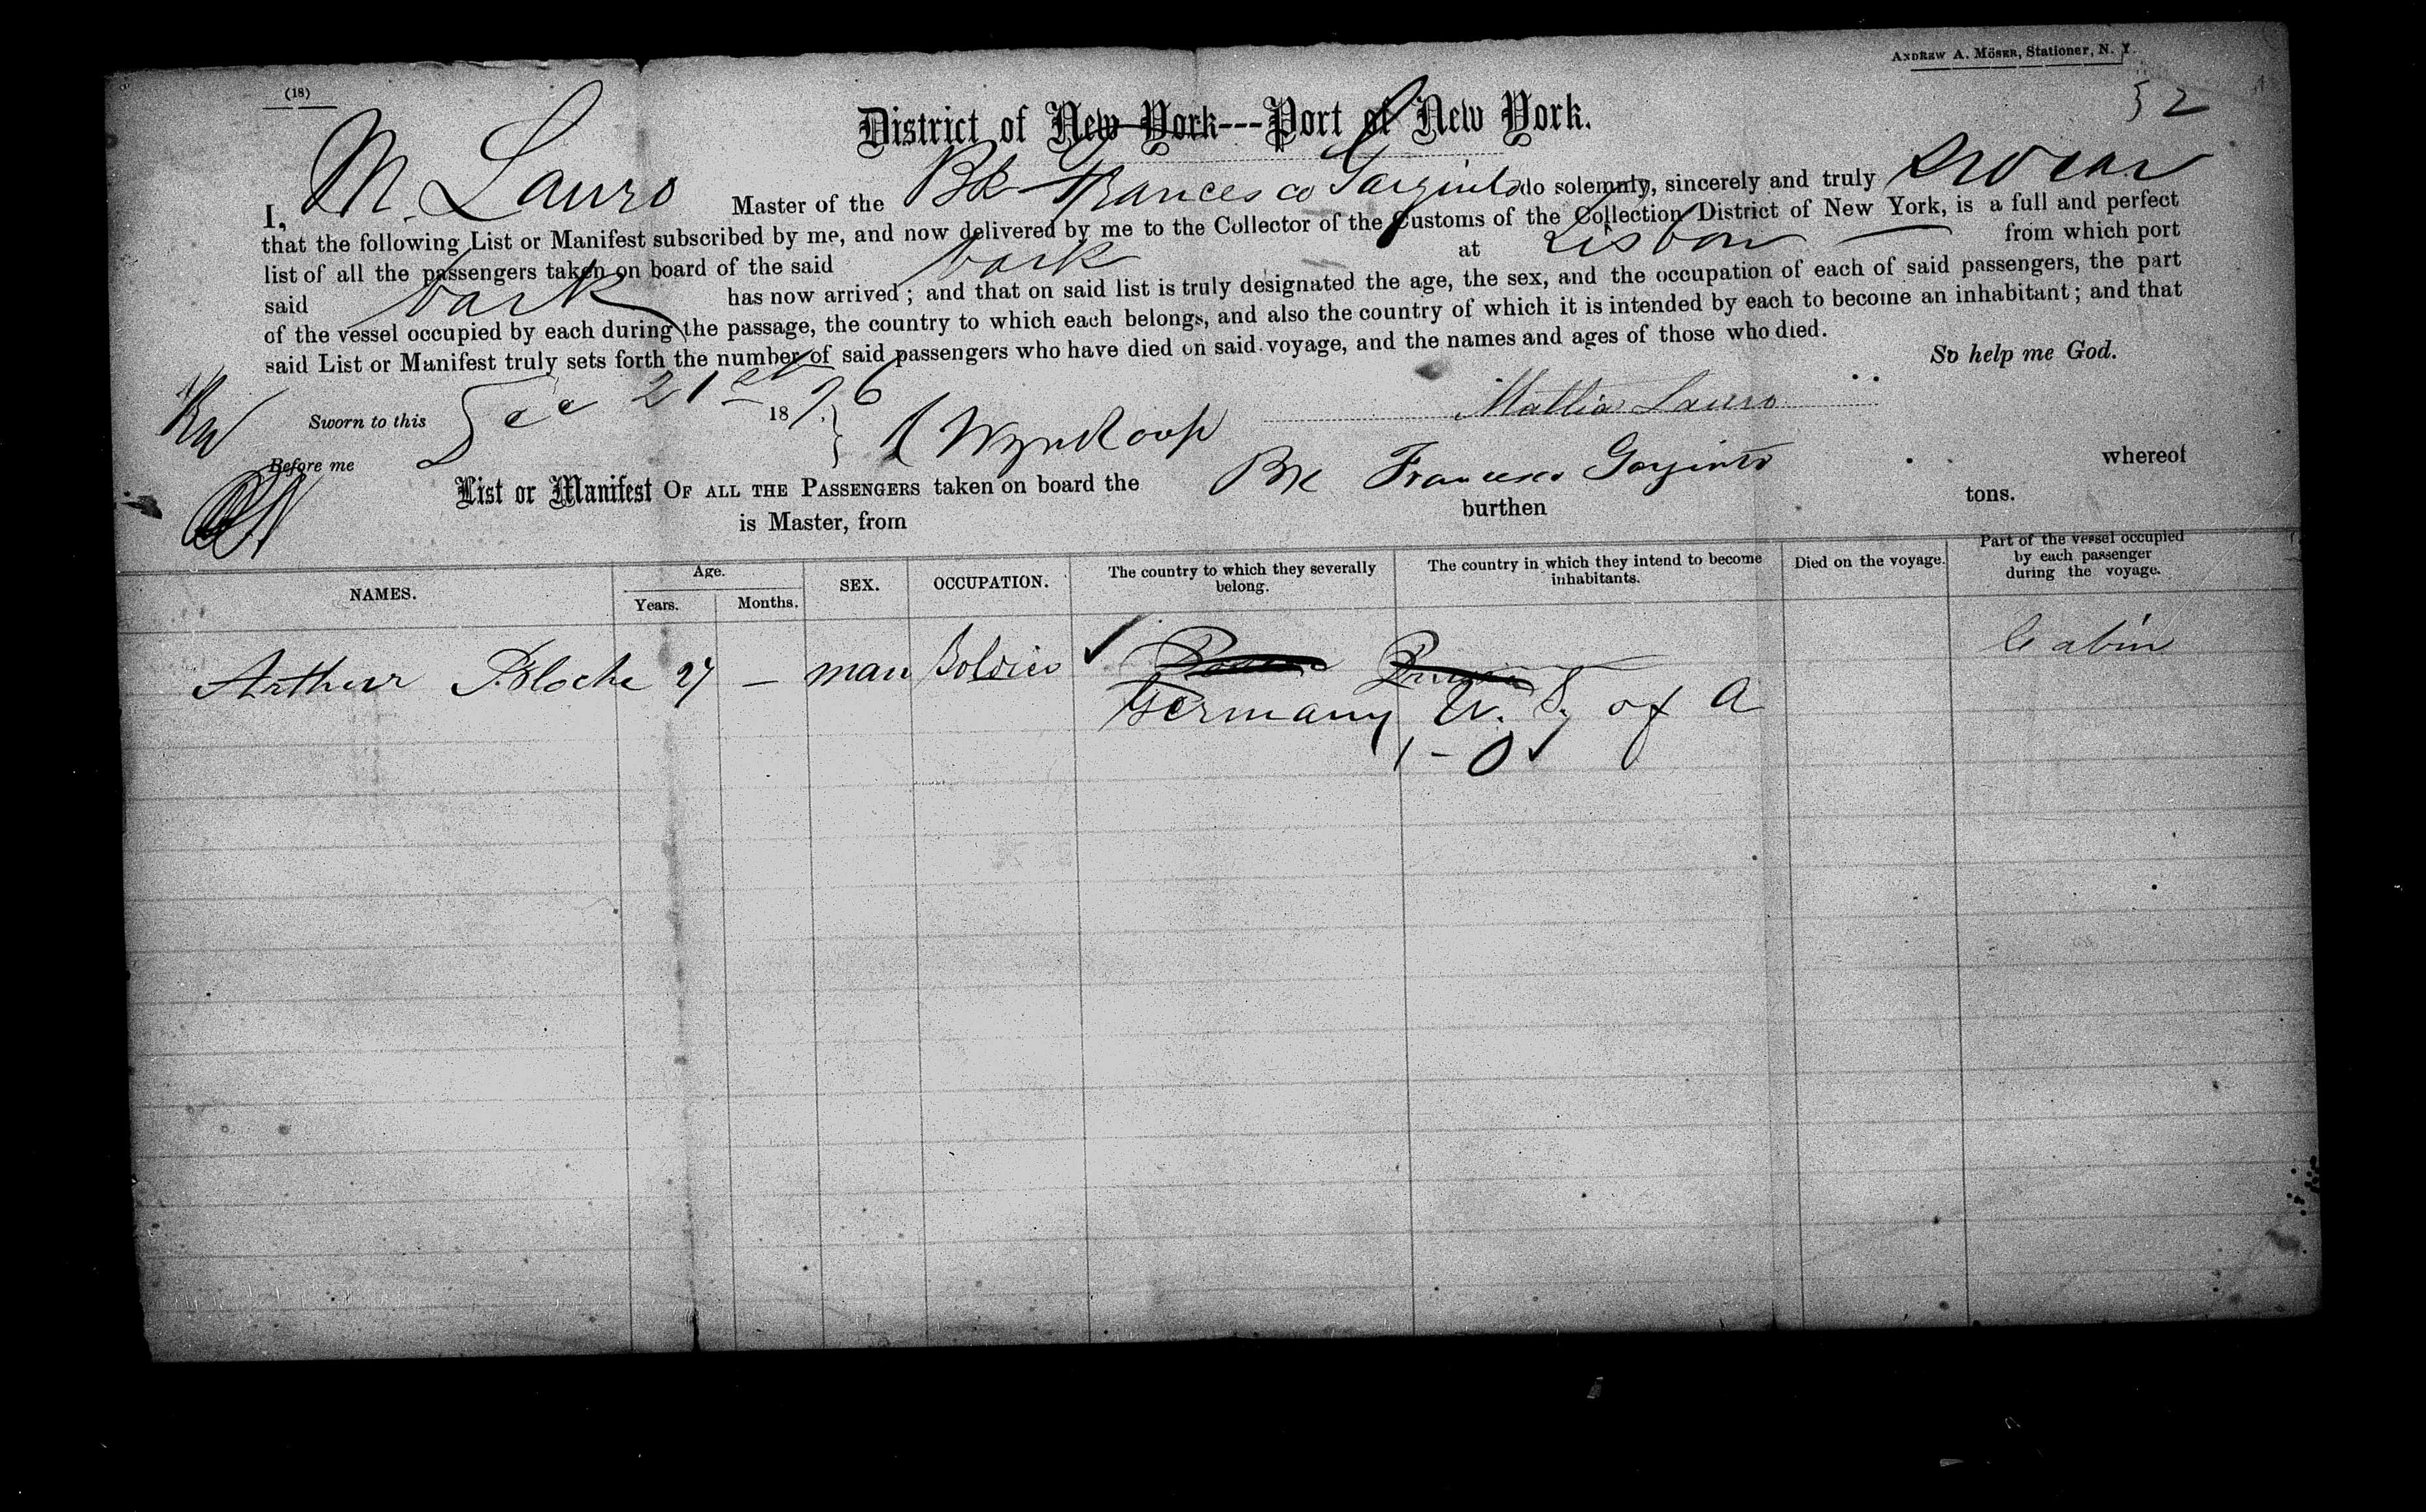 ANDREW A. MÖSER, Stationer, N. Y.
(18)
52
District of New York---Port of New York.
I, M. Lauro Master of the Bk Francesco do solemnly, sincerely and truly swear
that the following List or Manifest subscribed by me, and now delivered by me to the Collector of the Customs of the Collection District of New York, is a full and perfect
list of all the passengers taken on board of the said bark at Lisbon from which port
said bark has now arrived ; and that on said list is truly designated the age, the sex, and the occupation of each of said passengers, the part
of the vessel occupied by each during the passage, the country to which each belongs, and also the country of which it is intended by each to become an inhabitant ; and that
said List or Manifest truly sets forth the number of said passengers who have died on said voyage, and the names and ages of those who died.
So help me God.
Sworn to this Dec 21st 1876
Mattia Lauro
Before me Wynkoop
List or Manifest OF ALL THE PASSENGERS taken on board the Bk Francesco whereof
is Master, from burthen tons.
NAMES. Age. Years. Months. SEX. OCCUPATION. The country to which they severally belong. The country in which they intend to become inhabitants. Died on the voyage. Part of the vessel occupied by each passenger during the voyage.
Arthur 27 — man Soldier Cabin
Germany U. S. of A
1 - 0